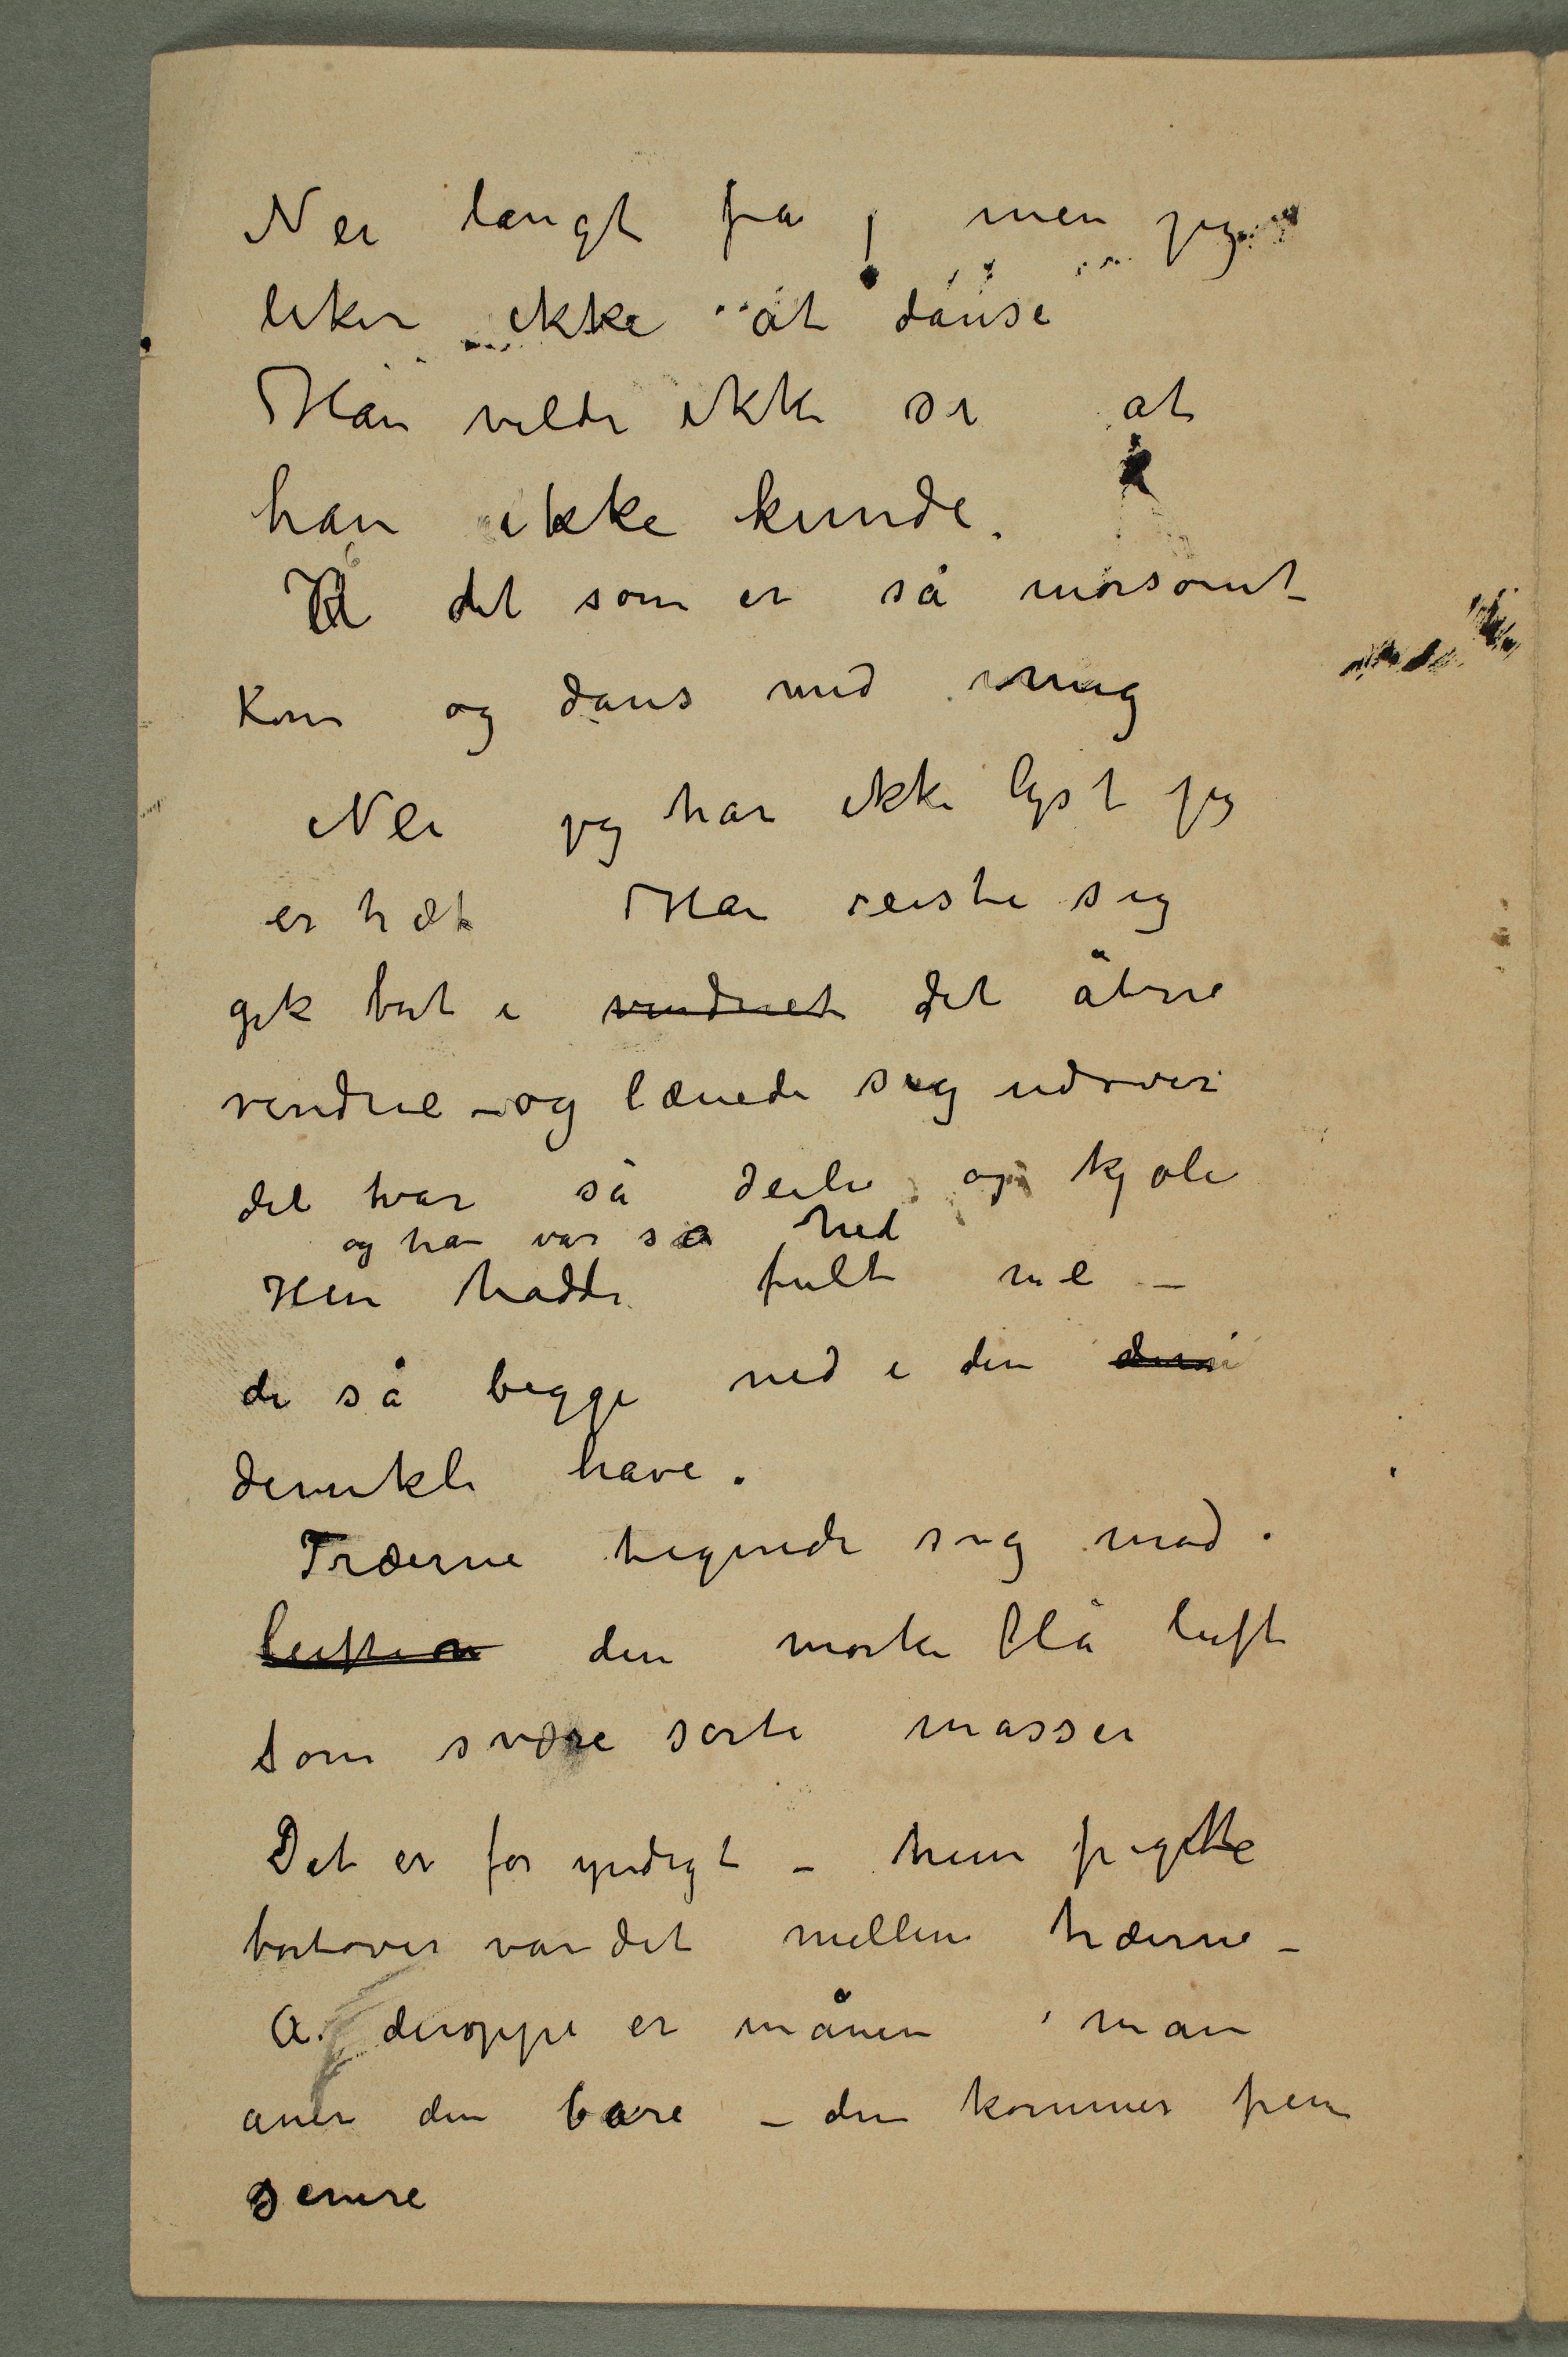 Nei langt fra, men jeg
liker ikke at danse
Han vilde ikke si at
han ikke kunde.
Å det som er så morsomt –
Kom og dans med mig
Nei jeg har ikke lyst jeg
er træt Han reiste sig
gik bort i vinduet det åbne
vindue – og lænede sig udover
det var så deili og kjøle
og han var så hed
Hun hadde fult me –
de så begge ned i den
dunkle have.
Træerne tegnede sig mod
luften den mørke blå luft
som svære sorte masser
Det er for yndigt – hun pegte
bortover vandet mellem træerne –
Å deroppe er månen man
aner den bare – den kommer frem
senere